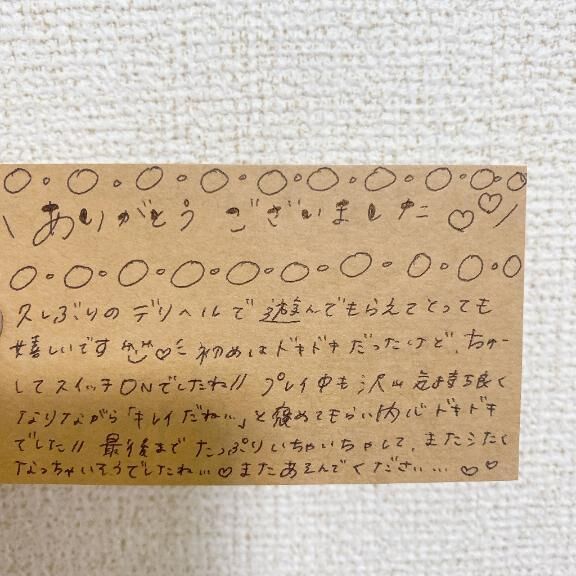 \ ありがとう ございました ♡♡/
久しぶりの デリヘルで 遊んでもらえてとっても
嬉しいです ♡ 初めはドキドキだったけど、ちゅー
してスイッチONでしたね!! プレイ中も沢山気持ち良く
なりながら「キレイだねぃぃ」と褒めてもらい内心ドキドキ
でした!! 最後まで たっぷりいちゃいちゃして、また
なっちゃいそうでしたねぃぃ♡またあそんでください… ♡♡